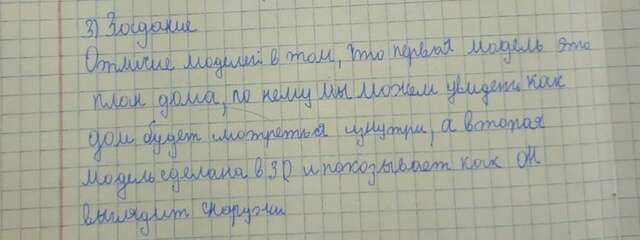 3) Зосдание
Отличие моделей в том, что первая модель это
план дома, по нему мы можем увидеть как
дом будет смотреться изнутри, а вторая
модель сделана в 3D и показывает как он
выглядит снаружи